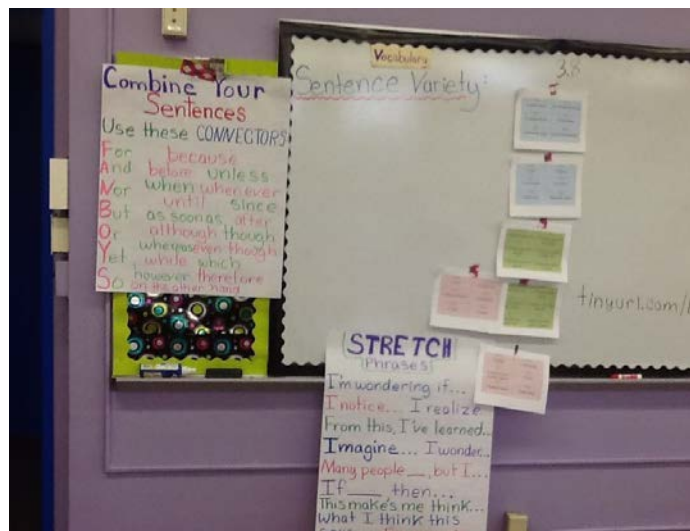 Combine Your
Sentences
Use these CONNECTORS
For because
And before unless
Nor when whenever
until since
But as soon as after
Or although though
whereas even though
Yet while which
So however therefore
on the other hand
Vocabulary
Sentence Variety:
3.8
tinyurl.com/
STRETCH
(Phrases)
I'm wondering if...
I notice... I realize
From this, I've learned...
Imagine... I wonder...
Many people __, but I...
If ___, then...
This make's me think...
What I think this